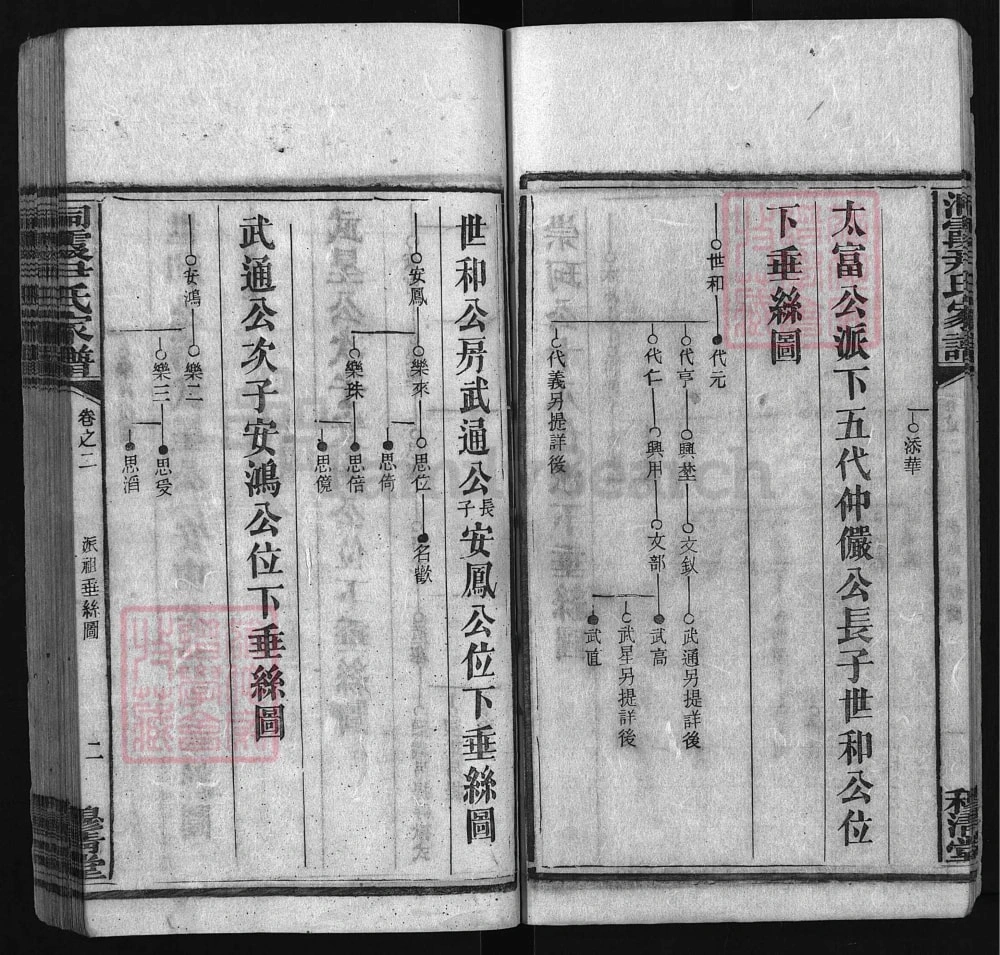 添華
太富公派下五代仲儼公長子世和公位
下垂絲圖
世和
代元
代亨
興埜
文釵
武通另提詳後
代仁
興用
文部
武高
武星另提詳後
武直
代義另提詳後
世和公房武通公長子安鳳公位下垂絲圖
安鳳
樂來
思位
名歡
思倚
樂珠
思倍
思儻
武通公次子安鴻公位下垂絲圖
安鴻
樂二
樂三
思受
思滔
尹氏家譜
卷之二
派祖垂絲圖
二